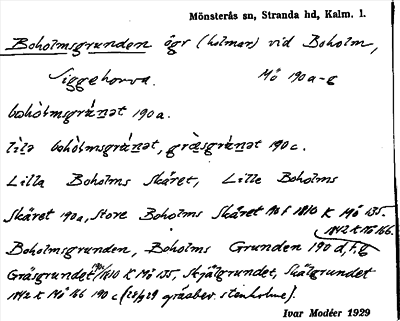 Mönsterås sn, Stranda hd, Kalm. l.
Boholmsgrunden ögr (holmar) vid Boholm,
Siggehorva. Mö 190 a-g
bohòlmsgrúnət 190 a.
lìlə bohòlmsgrúnət, græ̀sgrúnət 190 c.
Lilla Boholms Skäret, Lille Boholms
Skäret 190a, Store Boholms Skäret 190 f 1810 K Mö 135.
1842 K Mö 166.
Boholmsgrunden, Boholms Grunden 190 d, f, g
Gräsgrundet 1810 K Mö 135, Skjälgrundet, Skälgrundet
1842 K Mö 166 190 c (28/7 29 gräsbev. stenholme).
Ivar Modéer 1929